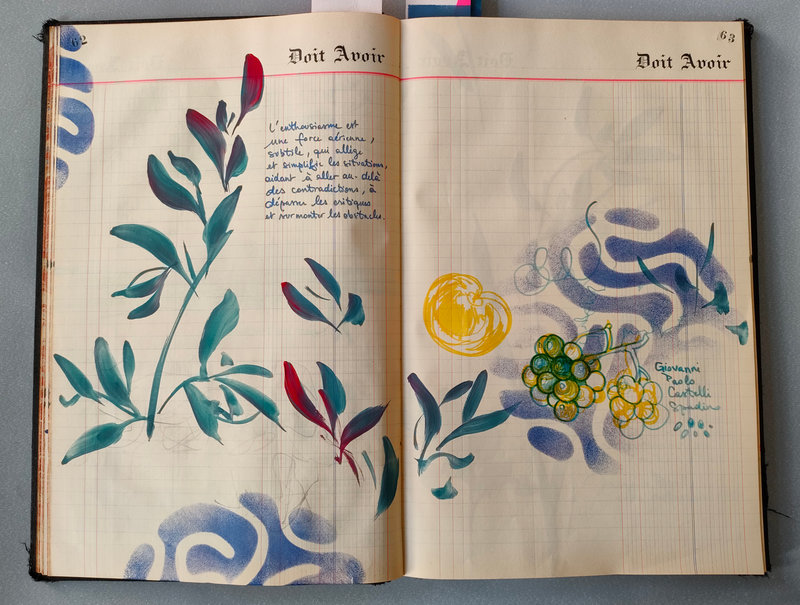 62
Doit Avoir
L'enthousiasme est
une force aérienne,
subtile, qui allège
et simplifie les situations,
aidant à aller au-delà
des contradictions, à
dépasser les critiques
et surmonter les obstacles.
63
Doit Avoir
Giovanni
Paolo
Castelli
Spadino